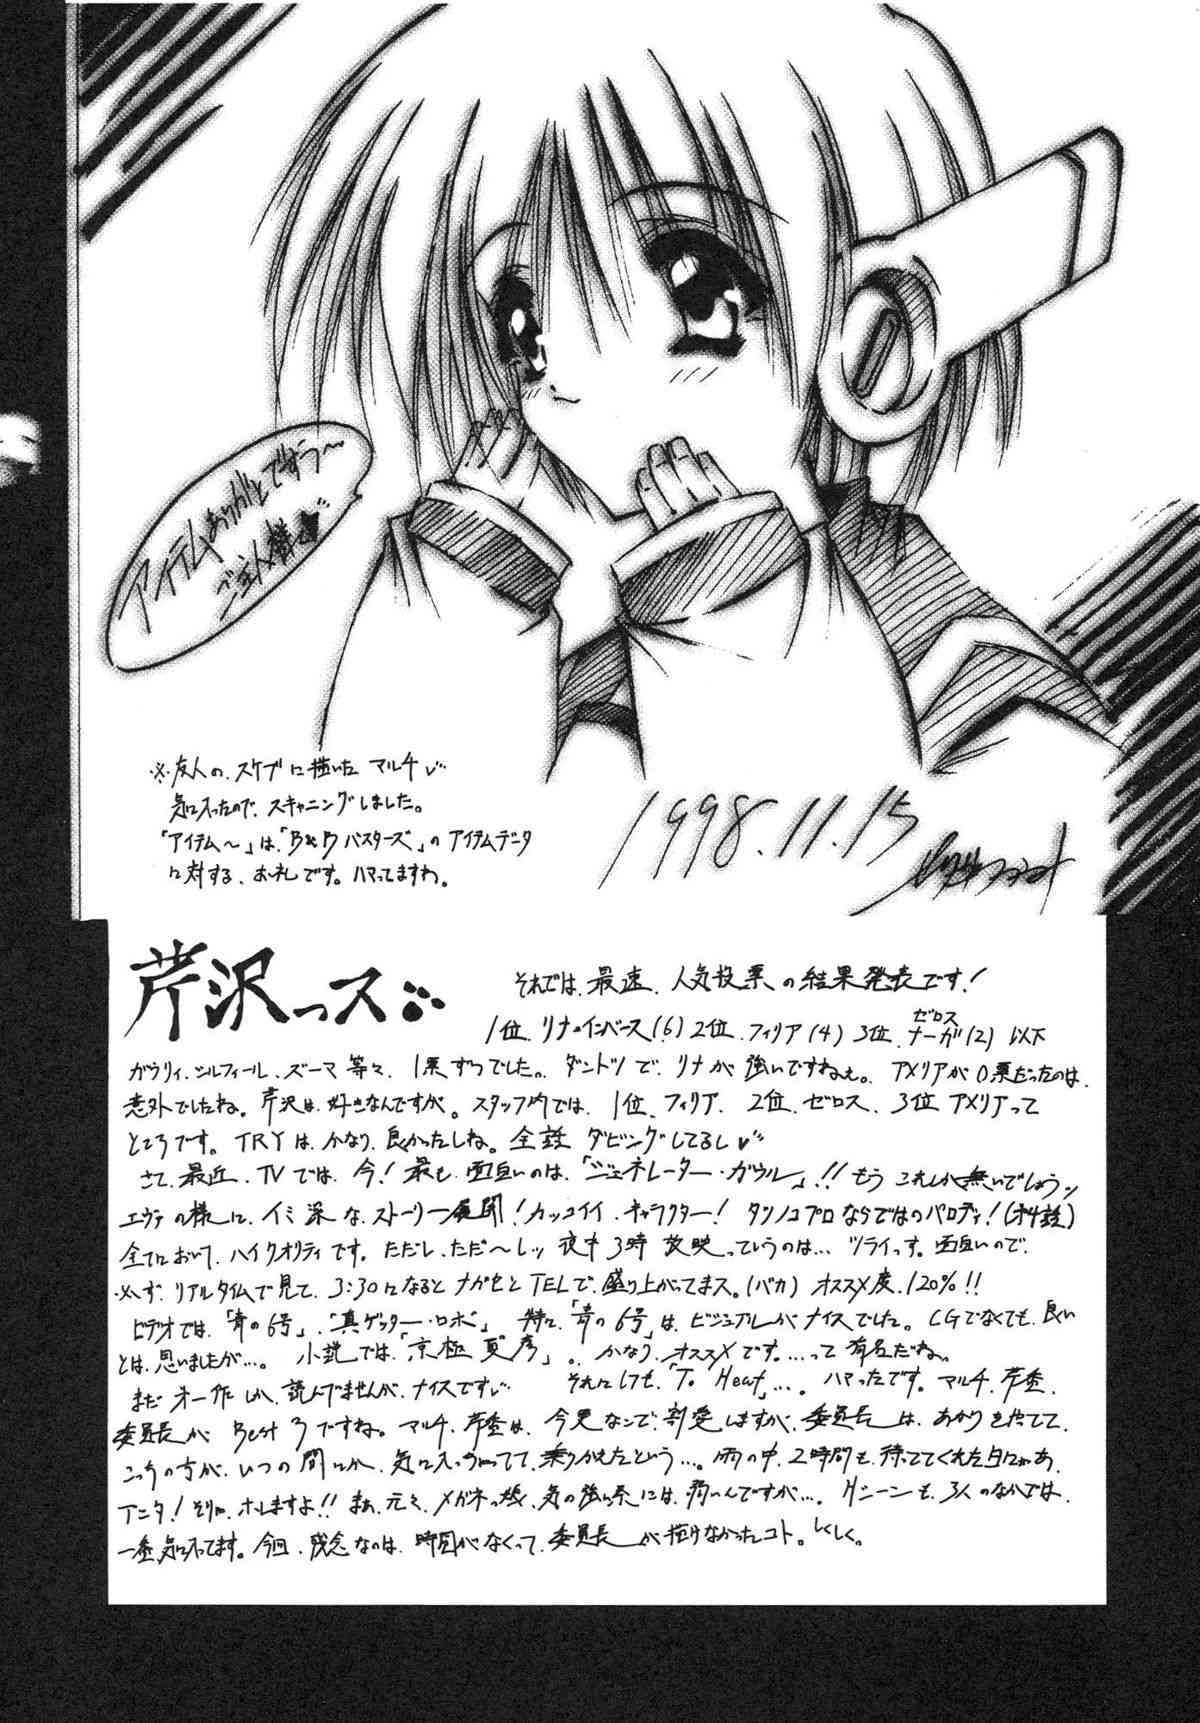 アイテムありがとですぅ〜
ご主人様
※友人の、スケブに描いた マルチ
気に入ったので、スキャニングしました。
「アイテム〜」は、「B&Dバスターズ」の アイテムデータ
に対する、お礼です。ハマってますわ。
1998.11.15
芹沢っス
それでは、最速、人気投票の結果発表です!
1位、リナ=インバース(6) 2位、フィリア(4) 3位、ゼロス ナーガ(2) 以下
ガウリィ、シルフィール、ズーマ 等々、1票ずつでした。ダントツで、リナが、強いですねぇ。アメリアが0票だったのは、
意外でしたね。芹沢は、好きなんですが。スタッフ内では、1位、フィリア、2位、ゼロス、3位 アメリアって
ところです。TRYは、かなり、良かったしね。全話 ダビングしてるし
さて、最近、TVでは、今!最も、面白いのは、「ジェネレーター・ガウル」!!もう これしか無いでしょうッ
エヴァの様に、イミ深な、ストーリー展開!カッコイイ、キャラクター!タツノコプロならではのパロディ!(オ4話)
全てにおいて、ハイクオリティです。ただし、ただ〜しッ 夜中3時 放映っていうのは…ツライっす。面白いので、
必ず、リアルタイムで見て、3:30になると ナガセとTELで、盛り上がってまス。(バカ) オススメ度、120%!!
ビデオでは、「青の6号」、「真ゲッター・ロボ」 特に、「青の6号」は、ビジュアルがナイスでした。CGでなくても、良い
とは、思いましたが…。 小説では、「京極 夏彦」。かなり、オススメです。…って 有名だね。
まだ オ一作しか、読んでませんが、ナイスです それにしても、「To Heart」…。ハマったです。マルチ、芹香、
委員長が Best 3ですね。マルチ、芹香は、今更なんで、割愛しますが、委員長は、あかりを捨てて、
こっちの方が、いつの間にか、気に入っちゃってて、乗りかえたという…。雨の中、2時間も、待っててくれた日にゃあ、
アニタ!そりゃ、ホレますよ!!まぁ、元々、メガネっ娘、気の強い系には、弱いんですが…。Hシーンも、3人のなかでは、
一番、気に入ってます。今回、残念なのは、時間がなくって、委員長が描けなかったコト。しくしく。